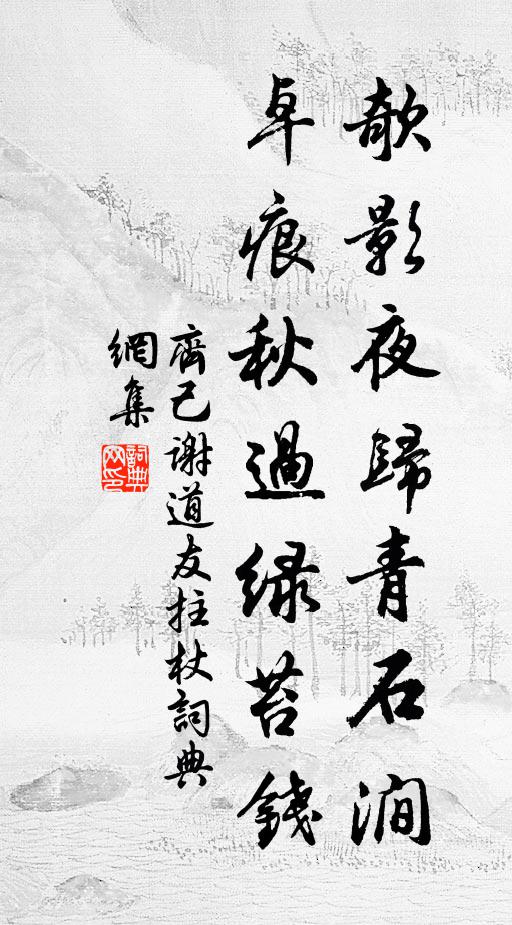 欹影夜歸青石澗
卓痕秋過緑苔錢
齊己謝道友拄杖詞典
網集
詞典網印